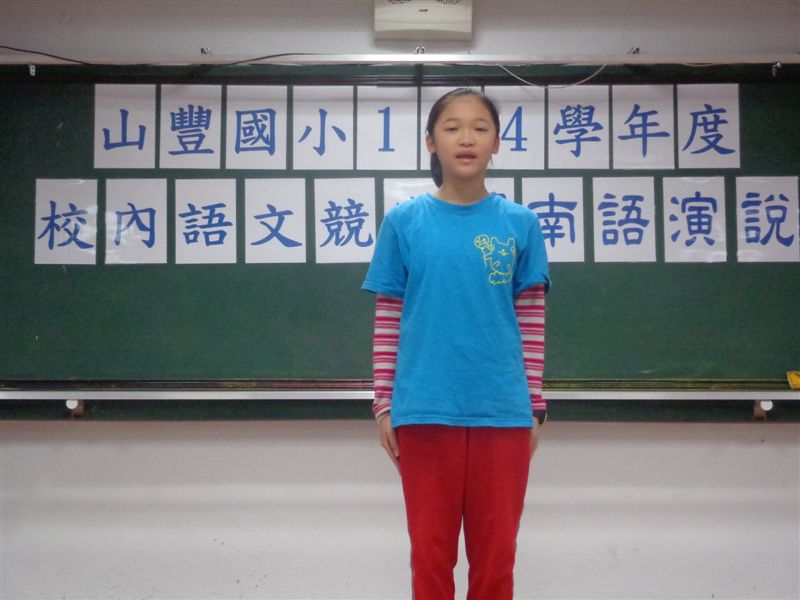 山豐國小1 4學年度
校內語文競 南語演說